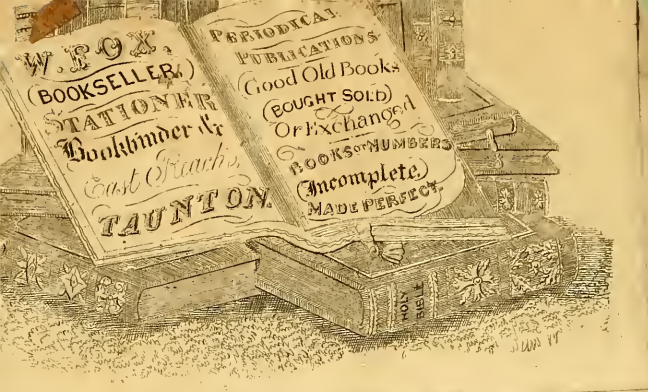 W. FOX,
(BOOKSELLER,)
STATIONER
Bookbinder &c
East Reach,
TAUNTON.
PERIODICAL
PUBLICATIONS
Good Old Books
(BOUGHT SOLD)
Or Exchanged
BOOKS OR NUMBERS
(Incomplete,)
MADE PERFECT.
HOLY
BIBLE